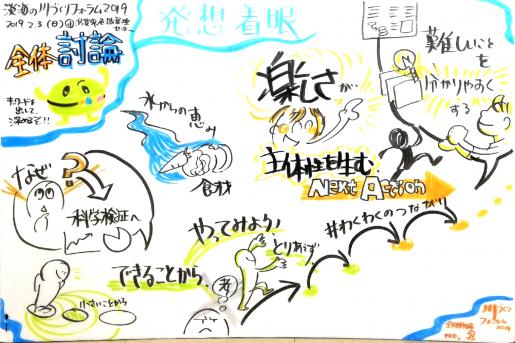 淡海の川づくりフォーラム2019
2019.2.3(日)
全体討論
キーワードを
出して
深めるぞ!!
発想着眼
水からの恵み
食材
楽しさが
主体性を生む
Next Action
難しいことを
分かりやすく
する
なぜ?
科学検証へ
やってみよう!
とりあえず
#わくわくのつながり
できることから
小さいことから
考
川づくり
フォーラム
2019
NO.